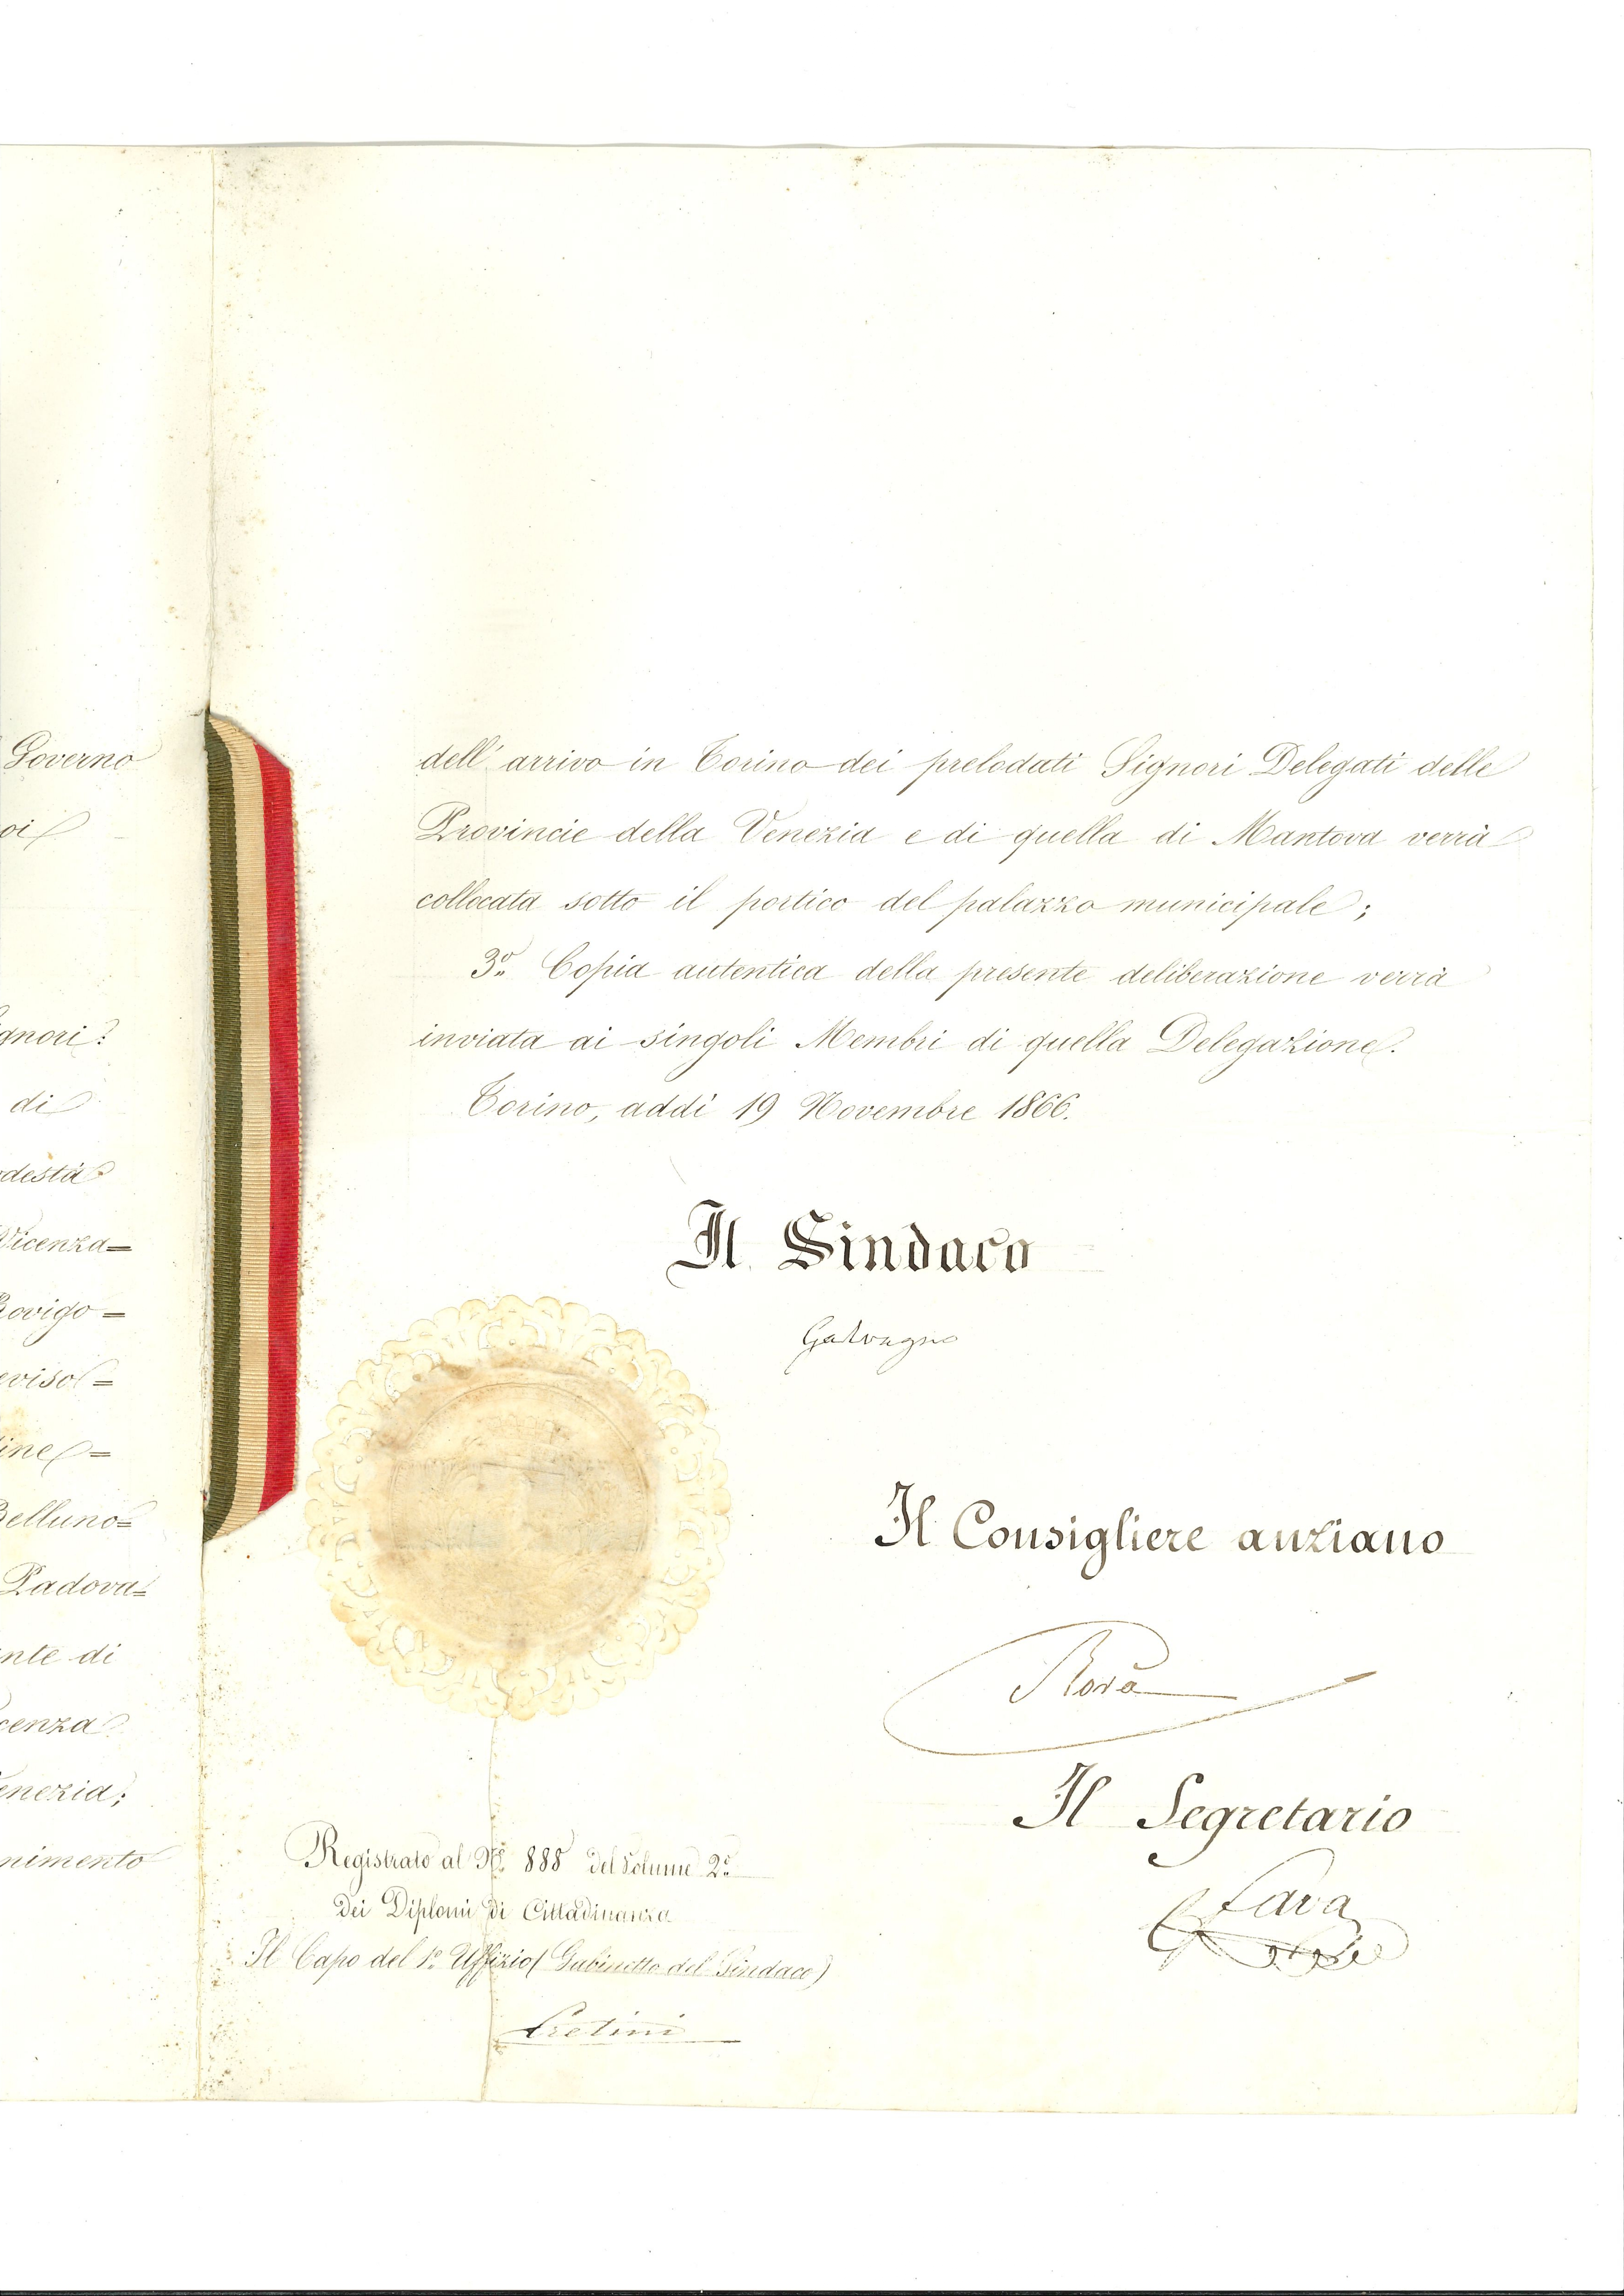 Governo
oi
gnori:
di
destà
Vicenza=
Rovigo=
eviso=
ine=
Belluno=
Padova=
nte di
cenza
enezia;
nimento
dell' arrivo in Torino dei prelodati Signori Delegati delle
Provincie della Venezia e di quella di Mantova verrà
collocata sotto il portico del palazzo municipale;
3.º Copia autentica della presente deliberazione verrà
inviata ai singoli Membri di quella Delegazione.
Torino, addì 19 Novembre 1866.
Il Sindaco
Galvagno
Il Consigliere anziano
Rorà
Il Segretario
Fava
Registrato al Nº 888 del Volume 2º
Dei Diplomi di Cittadinanza
Il Capo del 1º Uffizio (Gabinetto del Sindaco)